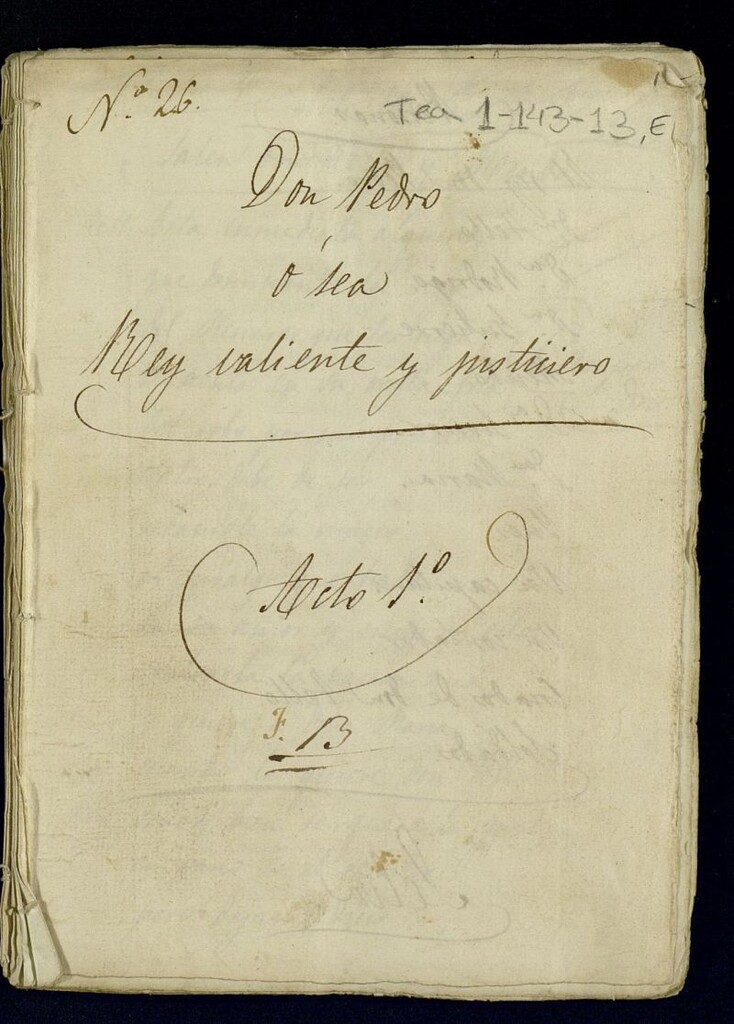 Nº 26.
Tea 1-143-13, E
Don Pedro
ó sea
Rey valiente y justiciero
Acto 1º.
F. 13